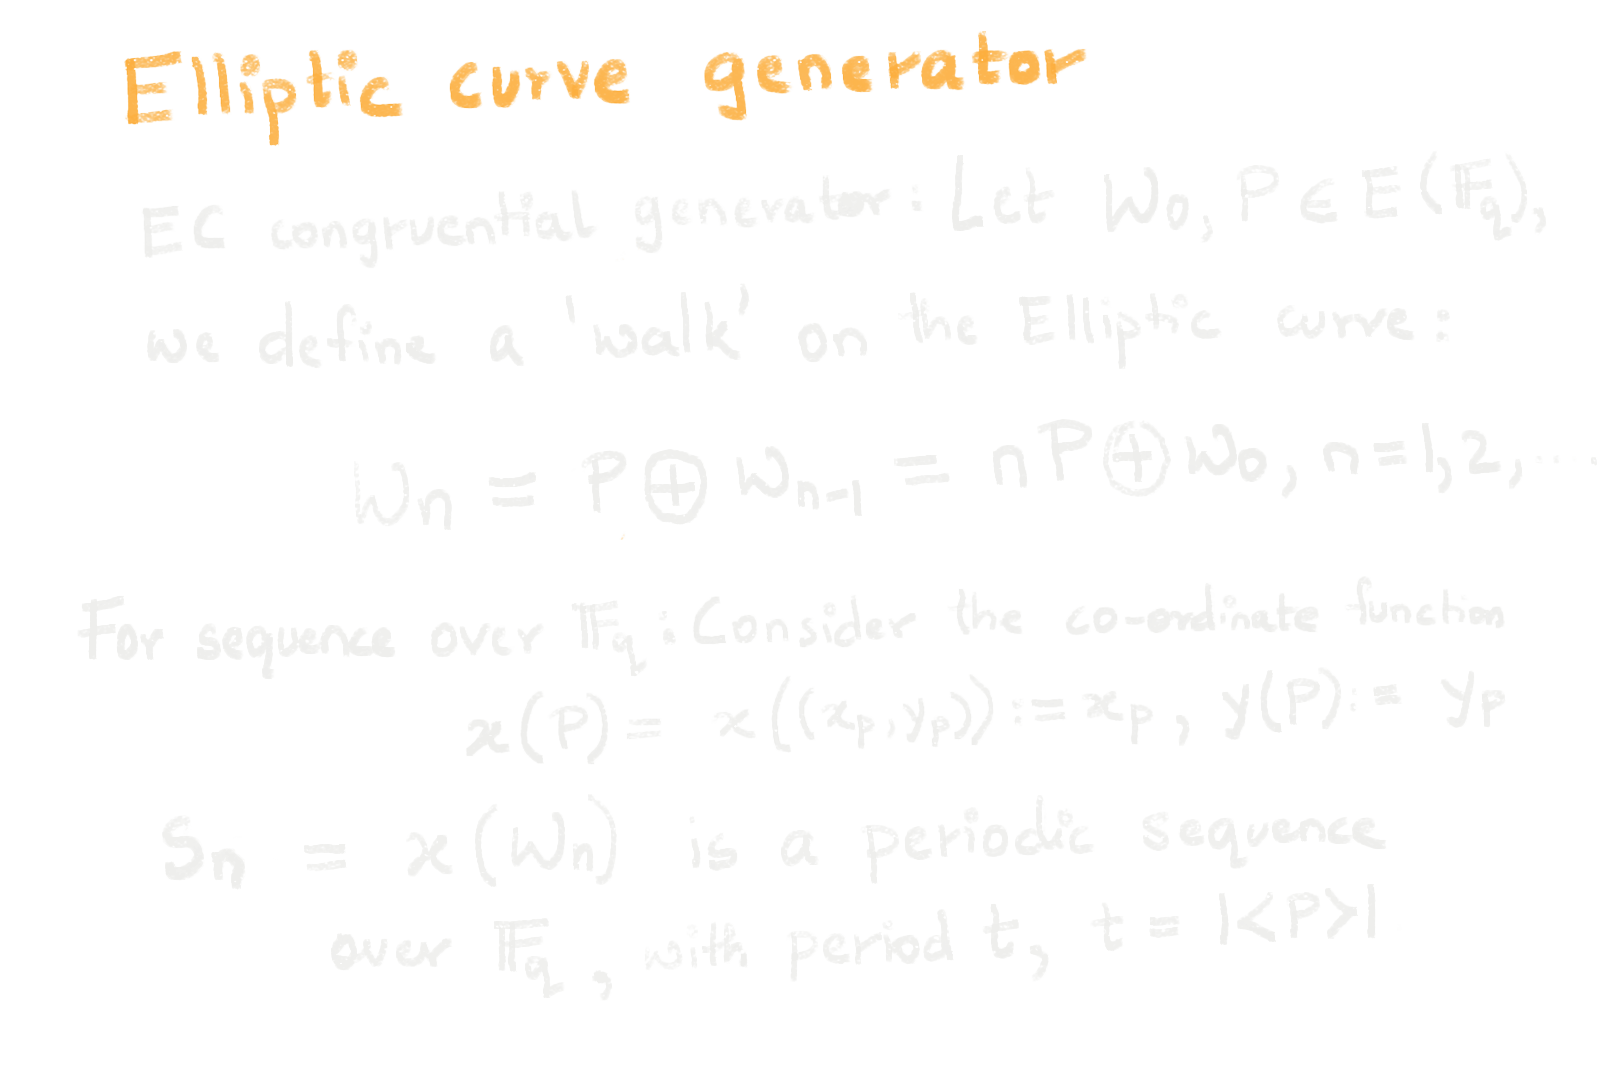 Elliptic curve generator
EC congruential generator: Let W₀, P ∈ E(𝔽q),
we define a 'walk' on the Elliptic curve:
Wn = P ⊕ Wn-1 = nP ⊕ W₀, n=1,2,....
For sequence over 𝔽q: Consider the co-ordinate function
x(P) = x((xp,yp)) := xp, y(P) := yp
Sn = x(Wn) is a periodic sequence
over 𝔽q, with period t, t = |<P>|